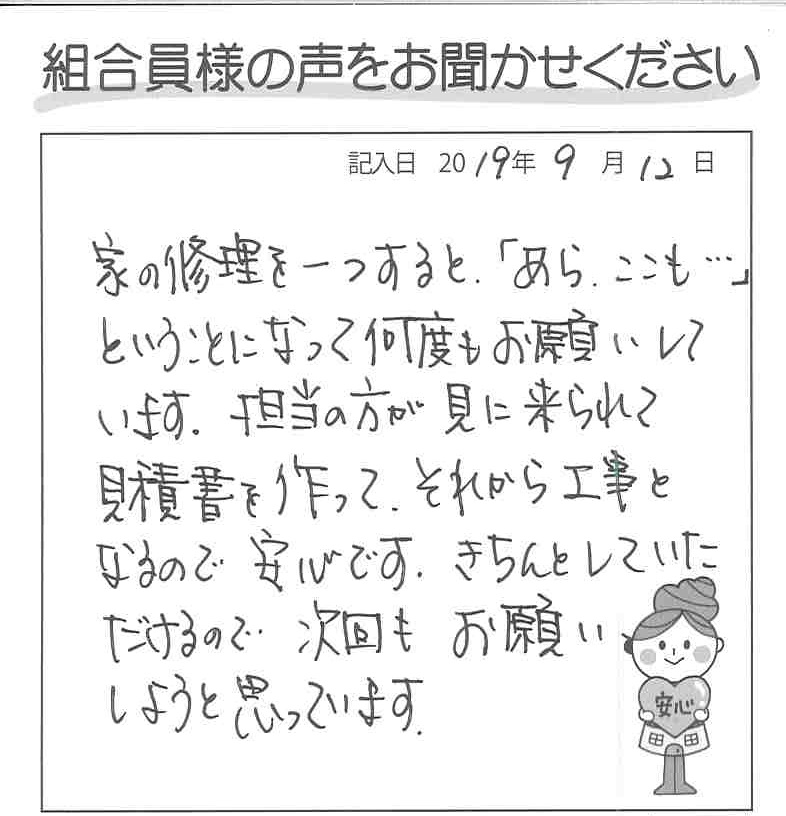 組合員様の声をお聞かせください
記入日 2019年 9月12日
家の修理を一つすると、「あら、ここも…」
ということになって何度もお願いして
います。担当の方が見に来られて
見積書を作って、それから工事と
なるので安心です。きちんとしていた
だけるので、次回もお願い
しようと思っています。
安心